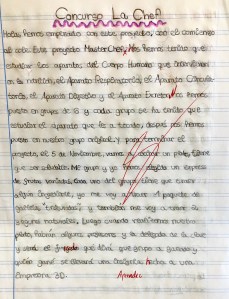 Concurso La Chef
Hola, hemos empezado con este proyecto, con el comienzo
del este proyecto MasterChef, nos hemos tenido que
estudiar los aparatos del Cuerpo Humano que intervienen
en la nutrición, el Aparato Respiratorio, el Aparato Circula-
torio, el Aparato Digestivo y el Aparato Excretor, nos hemos
puesto en grupos de 3 y cada grupo se ha tenido que
estudiar el aparato que le a tocado, después nos hemos
puesto en nuestro grupo original, y para terminar el
proyecto, el 5 de Noviembre, vamos a cocinar un plato, tiene
que ser saludable. Mi grupo y yo hemos elegido un
de fruta variada. Cada uno del grupo tiene que traer
algún ingrediente, yo me voy a traer 1 paquete de
y también me voy a traer
yogures naturales. Luego cuando realicemos nuestro
plato, habrán algunos profesores y la delegada de la clase
y será el jurado que dirá que grupo a ganado y
quién gane se llevará una hecha a una
impresora 3D.